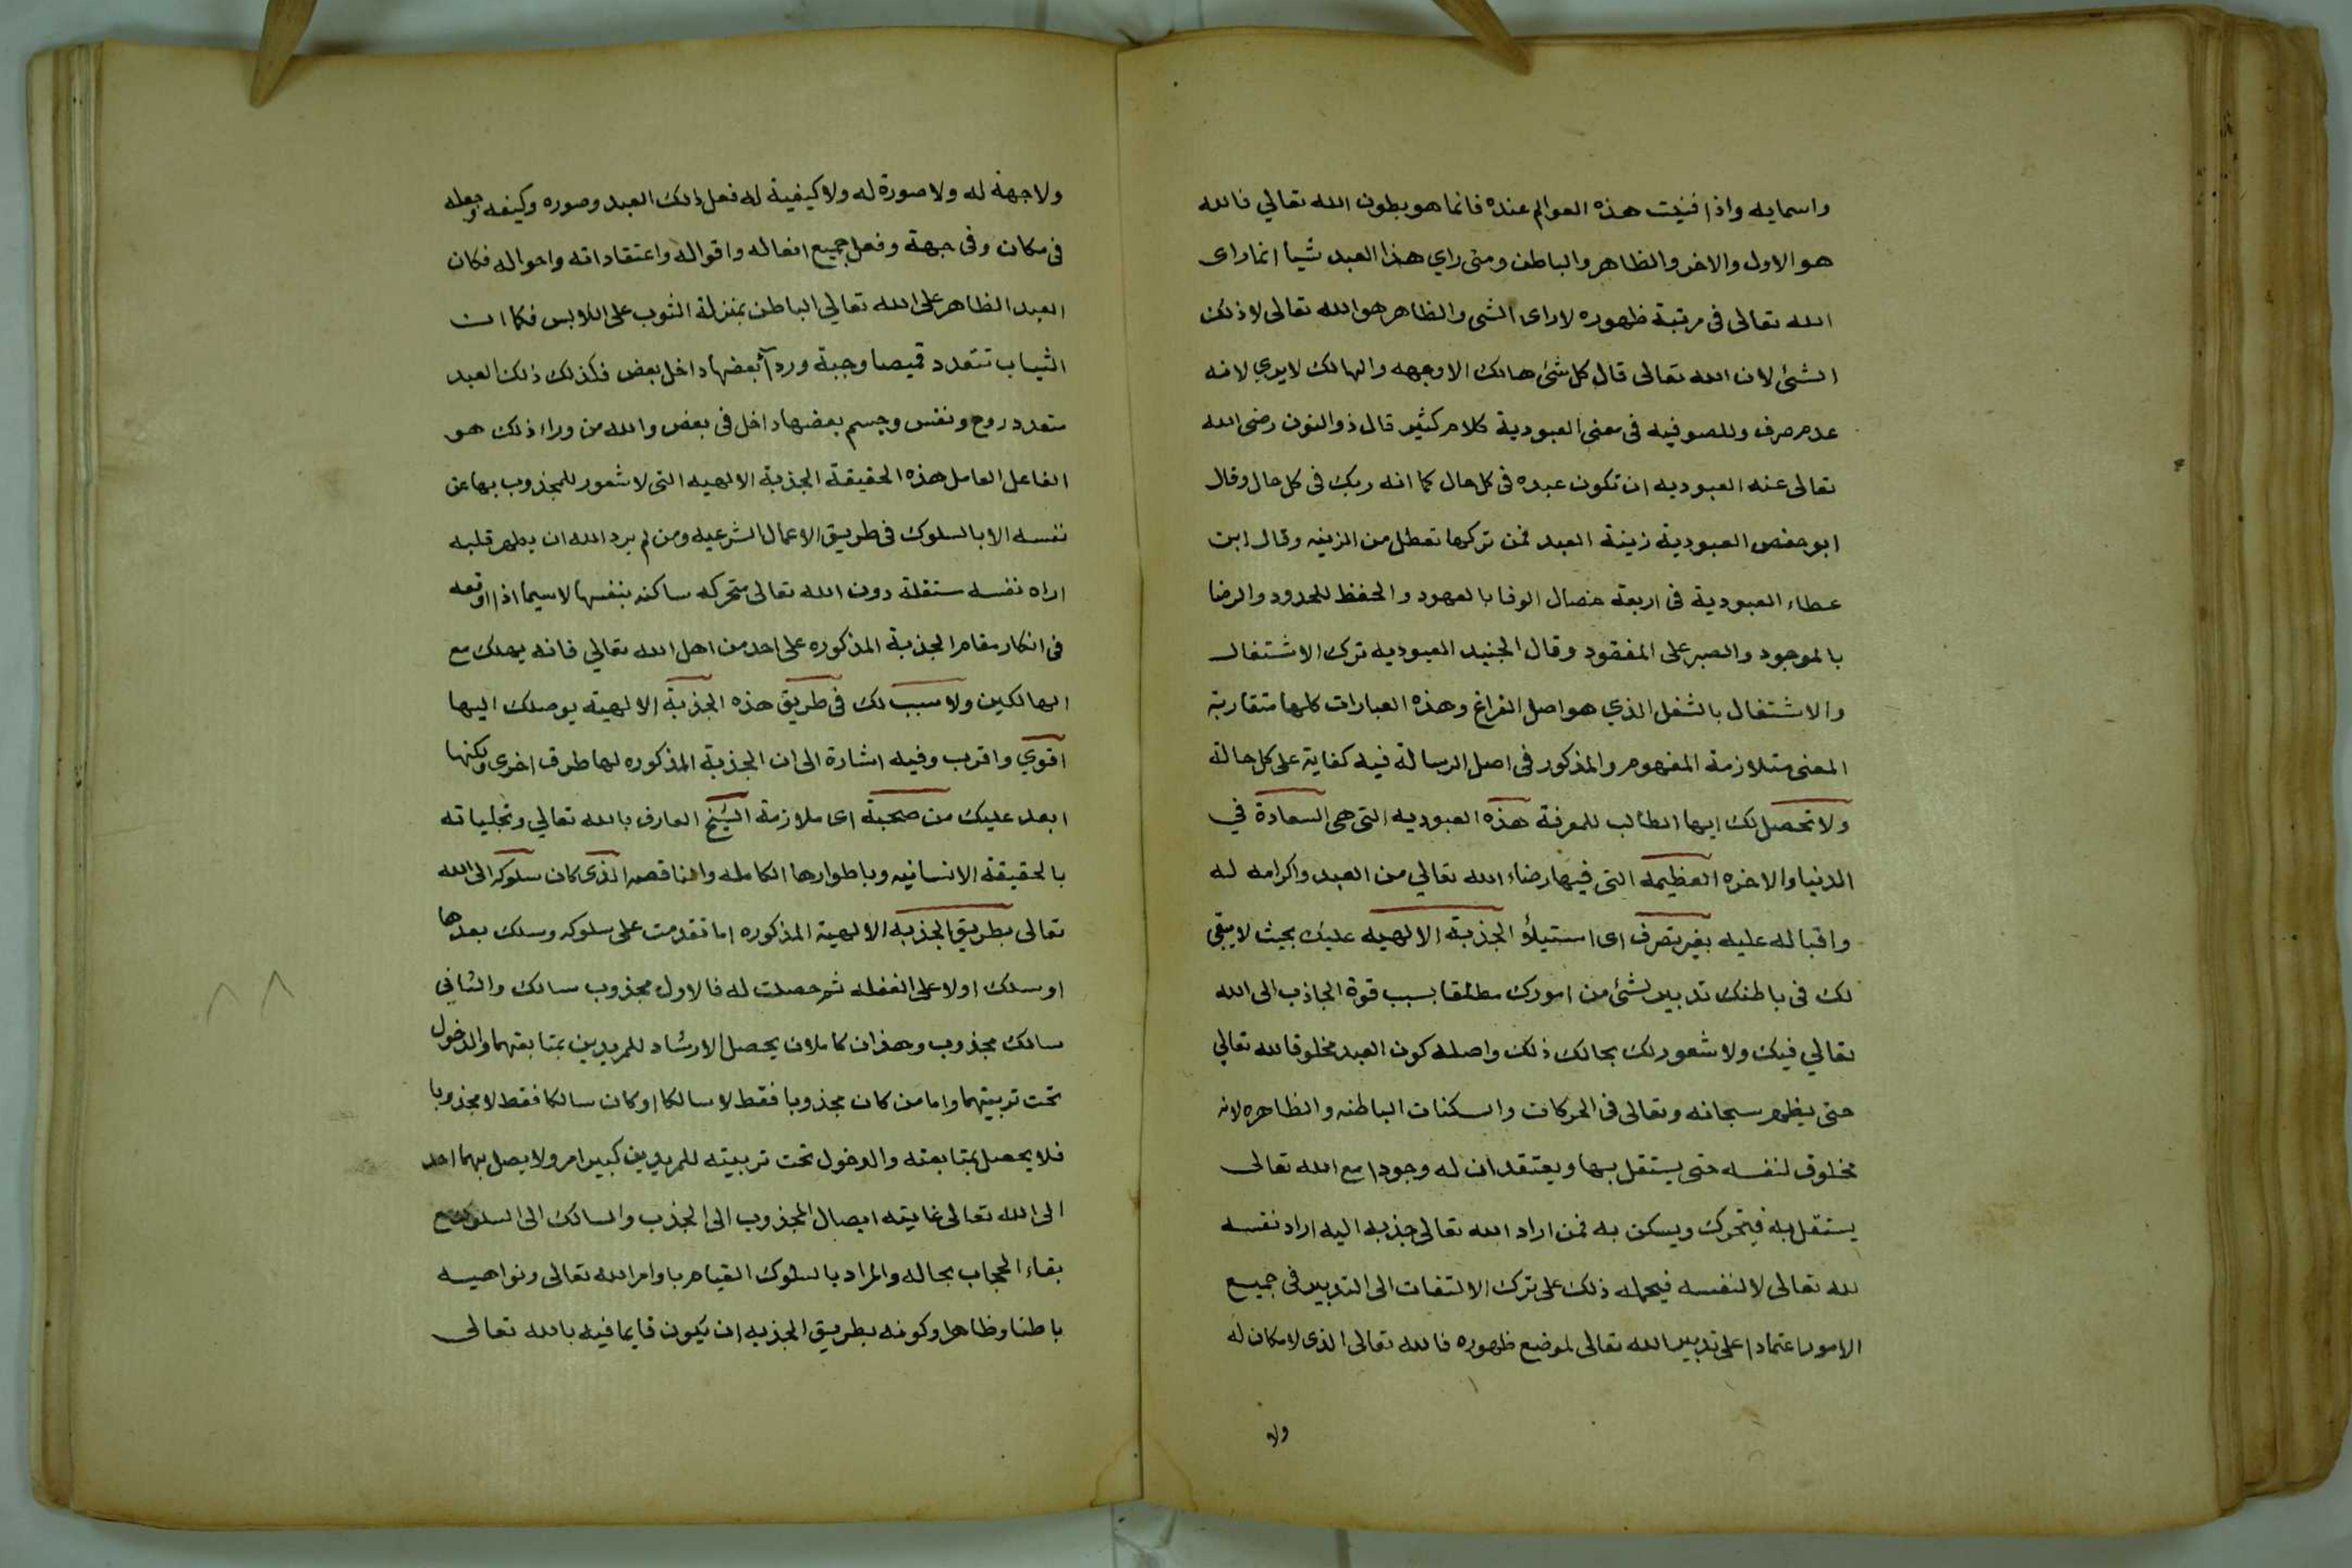 واسمايه واذا فنيت هذه العوالم عنده فانما هو بطون الله تعالي فالله
هو الاول والاخر والظاهر والباطن ومتى راي هذا العبد شيأ انما راى
الله تعالى فى مرتبة ظهوره لا راى الشى والظاهر هو الله تعالى لا ذلك
الشئ لان الله تعالى قال كل شئ هالك الا وجهه والهالك لا يري لانه
عدم صرف وللصوفيه فى معنى العبودية كلام كثير قال ذو النون رضى الله
تعالى عنه العبوديه ان تكون عبده فى كل حال كما انه ربك فى كل حال وقال
ابو حفص العبودية زينة العبد فمن تركها تعطل من الزينه وقال ابن
عطاء العبودية فى اربعة خصال الوفا بالعهود والحفظ للحدود والرضا
بالموجود والصبر على المفقود وقال الجنيد العبوديه ترك الاشتغال
والاشتغال بالشغل الذي هو اصل الفراغ وهذه العبارات كلها متقاربة
المعنى متلازمة المفهوم والمذكور فى اصل الرسالة فيه كفاية على كل حالة
ولا تحصل لك ايها الطالب للمعرفة هذه العبوديه التى هى السعادة في
الدنيا والاخره العظيمه التى فيها رضاء الله تعالي من العبد واكرامه له
واقباله عليه بغير تصرف اى استيلاء الجذبة الالهيه عليك بحيث لا يبقى
لك فى باطنك تدبير لشئ من امورك مطلقا بسبب قوة الجاذب الى الله
تعالي فيك ولا شعور لك بحالك ذلك واصله كون العبد مخلوقا لله تعالي
حتى يظهر سبحانه وتعالى فى الحركات والسكنات الباطنه والظاهره لا انه
مخلوق لنفسه حتى يستقل بها ويعتقد ان له وجودا مع الله تعالى
يستقل به فيتحرك ويسكن به فمن اراد الله تعالى جذبه اليه اراد نفسه
لله تعالى لا لنفسه فيحمله ذلك على ترك الالتفات الى التدبير فى جميع
الامور اعتمادا على تدبير الله تعالى لموضع ظهوره فالله تعالى الذى لا مكان له
ولا
ولا جهة له ولا صورة له ولا كيفية له فعل ذلك العبد وصوره وكيفه وجعله
فى مكان وفى جهة وفعل جميع افعاله واقواله واعتقاداته واحواله فكان
العبد الظاهر على الله تعالي الباطن بمنزلة الثوب على اللابس فكما ان
الثياب تتعدد قميصا وجبة وردآ بعضها داخل بعض فكذلك ذلك العبد
متعدد روح ونفس وجسم بعضها داخل فى بعض والله من وراء ذلك هو
الفاعل العامل هذه الحقيقة الجذبة الالهيه التى لا شعور للمجذوب بها عن
نفسه الا بالسلوك فى طريق الاعمال الشرعيه ومن لم يرد الله ان يطهر قلبه
اراه نفسه مستقلة دون الله تعالى متحركه ساكنه بنفسها لا سيما اذا اوقعه
فى انكار مقام الجذبة المذكوره على احد من اهل الله تعالي فانه يهلك مع
الهالكين ولا سبب لك فى طريق هذه الجذبة الالهية يوصلك اليها
اقوي واقرب وفيه اشارة الى ان الجذبة المذكوره لها طرق اخرى ولكنها
ابعد عليك من صحبة اى ملازمة الشيخ العارف بالله تعالي وتجلياته
بالحقيقة الانسانيه وباطوارها الكامله والناقصه الذى كان سلوكه الى الله
تعالى بطريق الجذبه الالهية المذكوره اما تقدمت على سلوكه وسلك بعدها
او سلك اولا على الغفله ثم حصلت له فالاول مجذوب سالك والثاني
سالك مجذوب وهذان كاملان يحصل الارشاد للمريدين بمتابعتهما والدخول
تحت تربيتهما واما من كان مجذوبا فقط لا سالكا او كان سالكا فقط لا مجذوبا
فلا يحصل بمتابعته والدخول تحت تربيته للمريدين كبير امر ولا يصل بهما احد
الى الله تعالى غايته ايصال المجذوب الى الجذب والسالك الى السلوك مع
بقاء الحجاب بحاله والمراد بالسلوك القيام باوامر الله تعالى ونواهيه
باطنا وظاهرا وكونه بطريق الجذبه ان يكون قايما فيه بالله تعالى